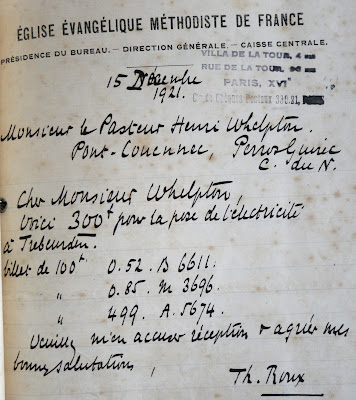 ÉGLISE ÉVANGÉLIQUE MÉTHODISTE DE FRANCE
PRÉSIDENCE DU BUREAU. — DIRECTION GÉNÉRALE. — CAISSE CENTRALE.
VILLA DE LA TOUR, 4
RUE DE LA TOUR,
PARIS, XVI
Chèques Postaux
15 Décembre
1921.
Monsieur le Pasteur Henri Whelpton.
Pont-Couennec, Perros Guirec
C. du N.
Cher Monsieur Whelpton,
Voici 300f pour la pose de l'électricité
à Trébeurden.
billet de 100f. 0.52. B 6611.
" 0.85. M 3696.
" 499. A. 5674.
Veuillez m'en accuser réception & agréer mes
bonnes salutations,
Th. Roux